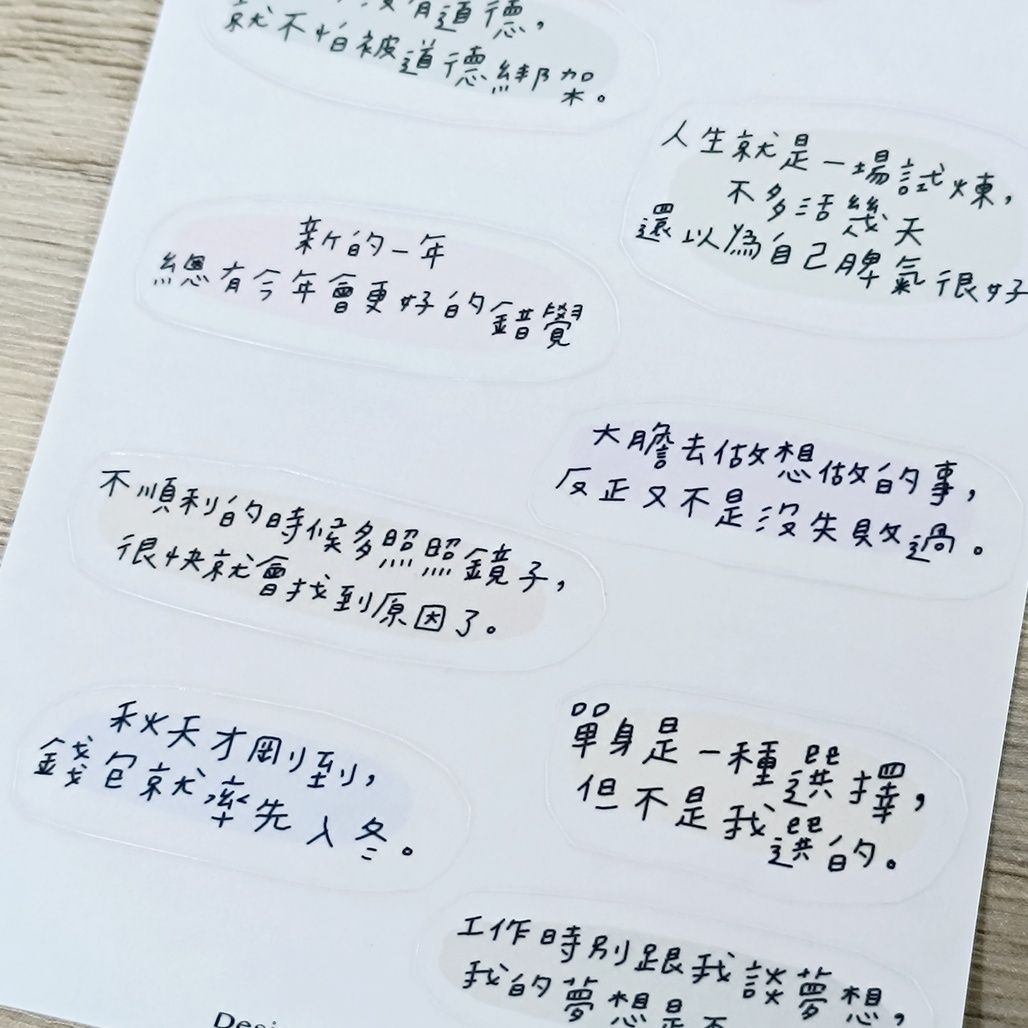 沒有道德，
就不怕被道德綁架。
人生就是一場試煉，
不多活幾天
還以為自己脾氣很好
新的一年
總有今年會更好的錯覺
大膽去做想做的事，
反正又不是沒失敗過。
不順利的時候多照照鏡子，
很快就會找到原因了。
秋天才剛到，
錢包就率先入冬。
單身是一種選擇，
但不是我選的。
工作時別跟我談夢想，
我的夢想是不